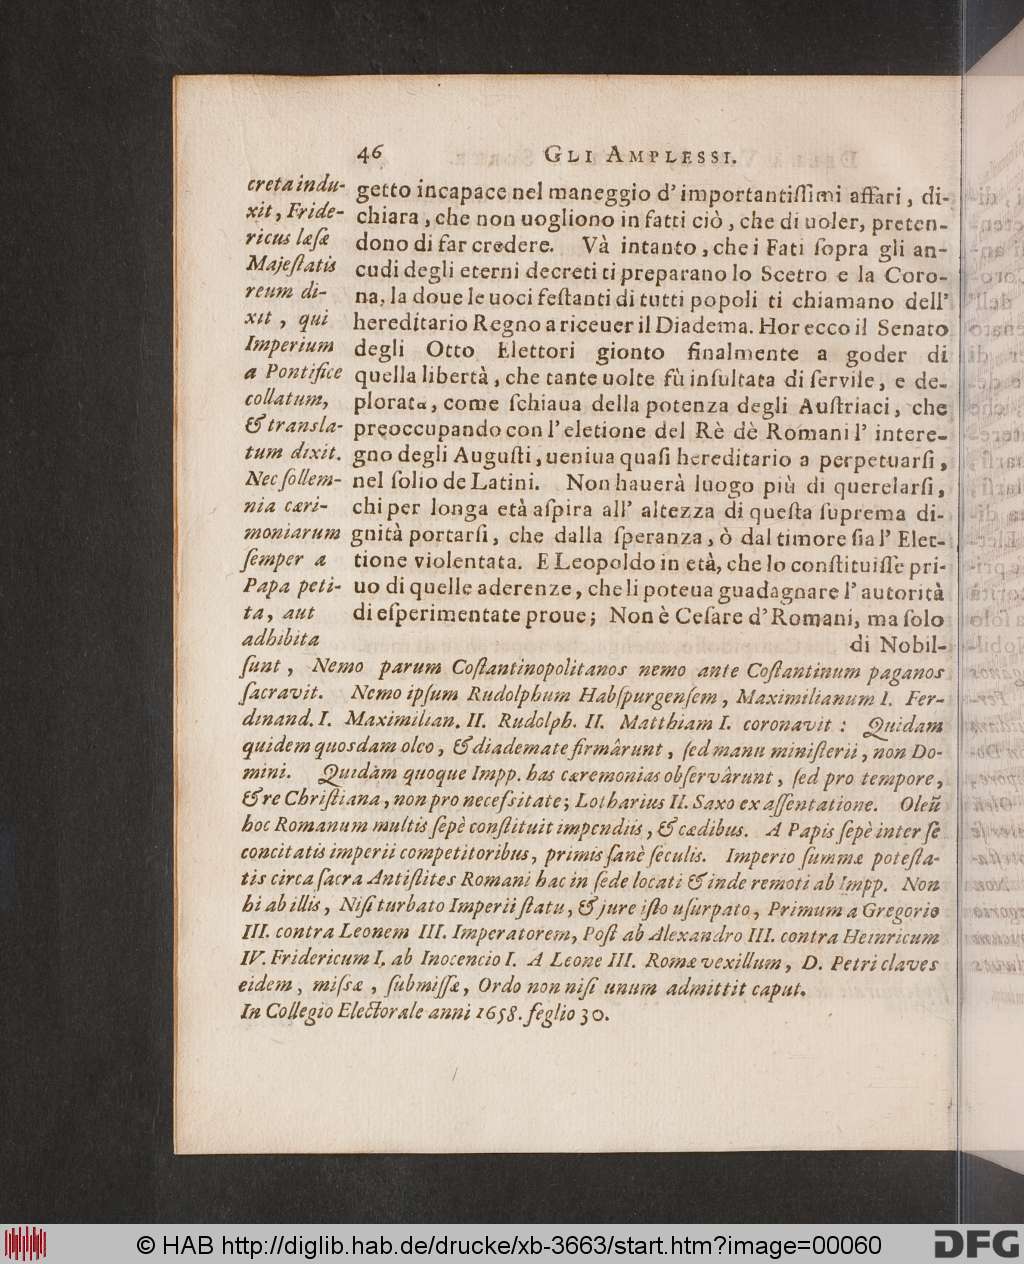 46 GLI AMPLESSI.
getto incapace nel maneggio d' importantiſſimi affari, di-
chiara, che non uogliono in fatti ciò, che di uoler, preten-
dono di far credere. Và intanto, che i Fati ſopra gli an-
cudi degli eterni decreti ti preparano lo Scetro e la Coro-
na, la doue le uoci feſtanti di tutti popoli ti chiamano dell'
hereditario Regno a riceuer il Diadema. Hor ecco il Senato
degli Otto Elettori gionto finalmente a goder di
quella libertà, che tante uolte fù inſultata di ſervile, e de-
plorata, come ſchiaua della potenza degli Auſtriaci, che
preoccupando con l' eletione del Rè dè Romani l' intere-
gno degli Auguſti, ueniua quaſi hereditario a perpetuarſi,
nel ſolio de Latini. Non hauerà luogo più di querelarſi,
chi per longa età aſpira all' altezza di queſta ſuprema di-
gnità portarſi, che dalla ſperanza, ò dal timore ſia l' Elet-
tione violentata. E Leopoldo in età, che lo conſtituiſſe pri-
uo di quelle aderenze, che li poteua guadagnare l' autorità
di eſperimentate proue; Non è Ceſare d' Romani, ma ſolo
di Nobil-
creta indu-
xit, Fride-
ricus læſæ
Majeſtatis
reum di-
xit, qui
Imperium
a Pontifice
collatum,
& transla-
tum dixit.
Nec ſollem-
nia cæri-
moniarum
ſemper a
Papa peti-
ta, aut
adhibita
ſunt, Nemo parum Coſtantinopolitanos nemo ante Coſtantinum paganos
ſacravit. Nemo ipſum Rudolphum Habſpurgenſem, Maximilianum I. Fer-
dinand. I. Maximilian. II. Rudolph. II. Matthiam I. coronavit: Quidam
quidem quosdam oleo, & diademate firmârunt, ſed manu miniſterii, non Do-
mini. Quidàm quoque Impp. has cæremonias obſervârunt, ſed pro tempore,
& re Chriſtiana, non pro neceſsitate; Lotharius II. Saxo ex aſſentatione. Oleũ
hoc Romanum multis ſepè conſtituit impendiis, & cædibus. A Papis ſepè inter ſe
concitatis imperii competitoribus, primis ſanè ſeculis. Imperio ſummæ poteſta-
tis circa ſacra Antiſtites Romani hac in ſede locati & inde remoti ab Impp. Non
hi ab illis, Niſi turbato Imperii ſtatu, & jure iſto uſurpato, Primum a Gregorio
III. contra Leonem III. Imperatorem, Poſt ab Alexandro III. contra Heinricum
IV. Fridericum I. ab Inocencio I. A Leone III. Romæ vexillum, D. Petri claves
eidem, miſsæ, ſubmiſſæ, Ordo non niſi unum admittit caput.
In Collegio Electorale anni 1658. ſeglio 30.
© HAB http://diglib.hab.de/drucke/xb-3663/start.htm?image=00060
DFG